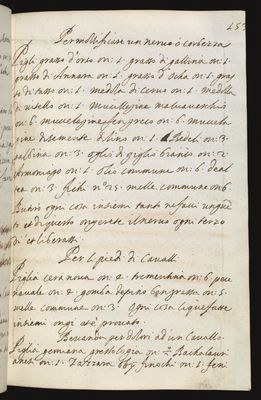 153
Per mollificare un nervo ò corbezza
Pigli grasso d'orso on: 1. grasso di gallina on: 1.
grasso di Annara on: 1. grasso d'Ocha on: 1. gras
so di tasso on: 1. medolla di cervo on: 1. medolla
di vitello on: 1. mucillagine malvavenschio
on: 6. mucelagine fengreco on: 6. mucela
gine di semente di lino on: 1. on: 3.
gallina on: 3. oglio di giglio bianco on: 2.
on: 1. Olio commune on: 6. de al
tea on: 3. fichi n.º 25. melle commune on: 6
ogni cosa insiem tanto ne facci unguẽ
to et di questo ongerete il nervo ogni terzo
dì et liberassi.
Per li piedi di Cavalli
Piglia cera nova on: 2. trementina on: 6. pece
navale on: 2. gomba de pino on: 5.
melle commune on: 3. Ogni cosa liquefatte
insiemi ongi et è provato.
Bevanda per dolori ad un Cavallo
Piglia gentiana on: Bachalauri
aneti on: 1. Zaffrana finochi on: 1. fen